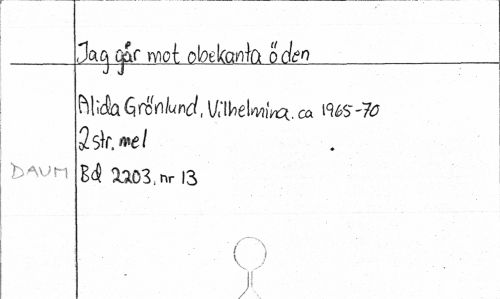 Jag går mot obekanta öden
Alida Grönlund, Vilhelmina. ca 1965-70
2 str. mel
DAUM Bd 2203, nr 13